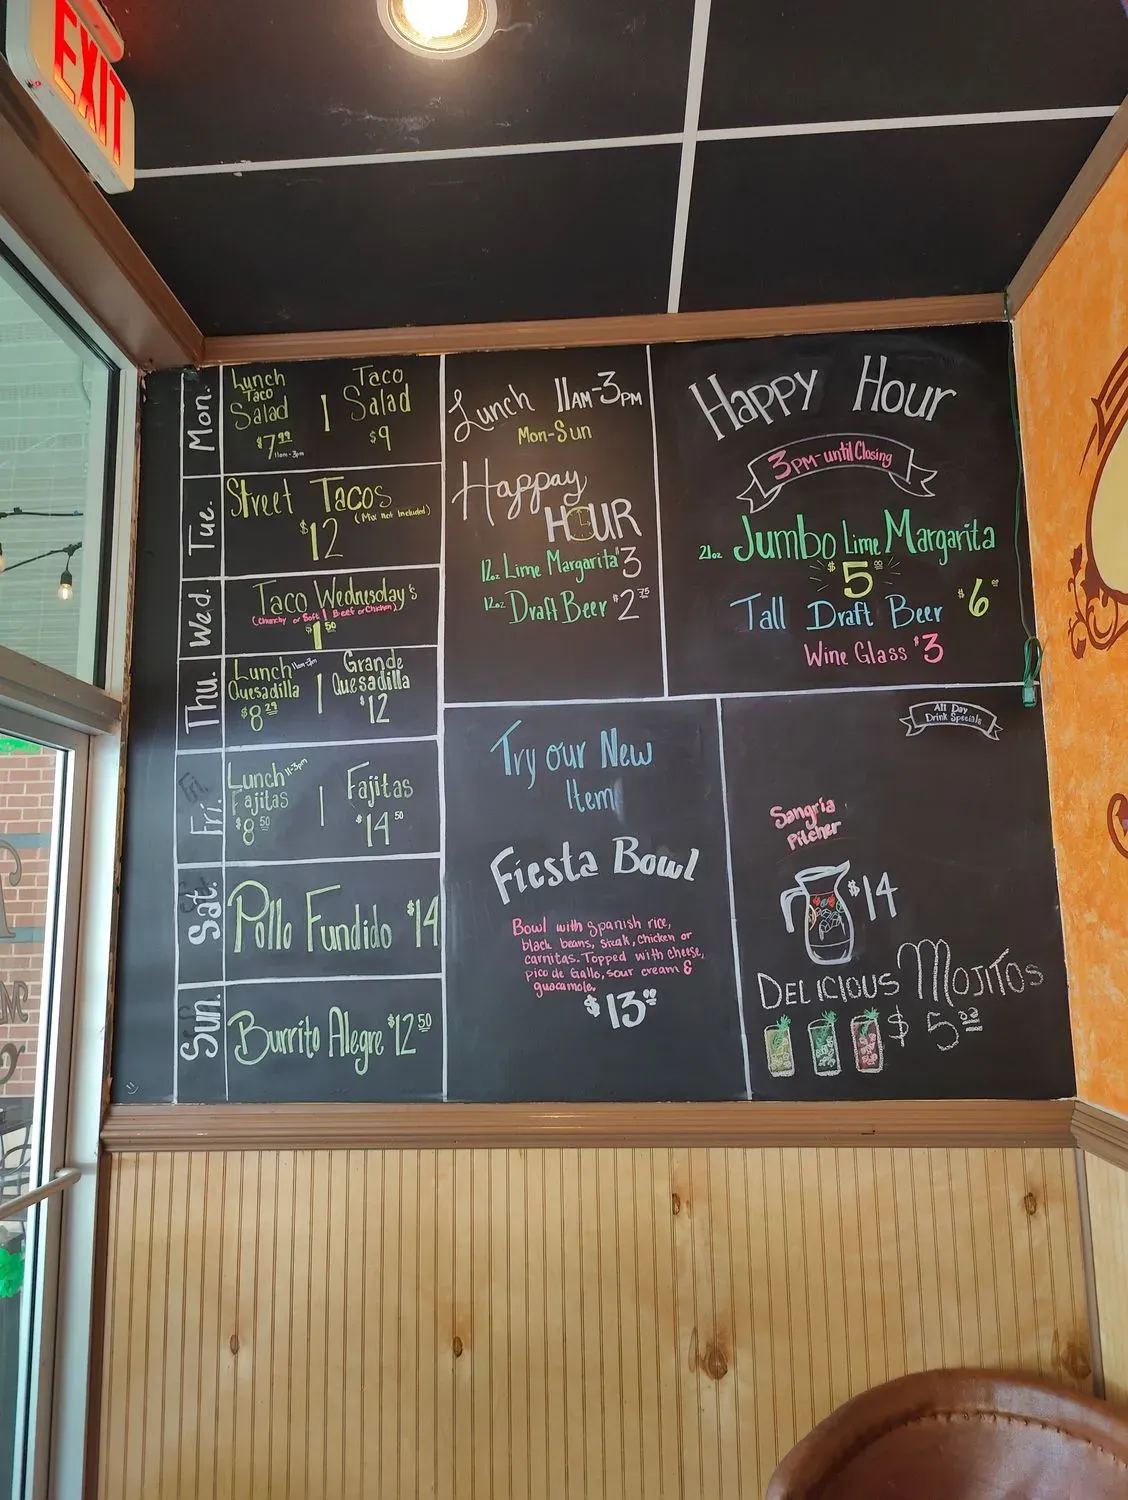 EXIT
Mon.
Lunch
Taco
Salad
$7.99
11am-3pm
Taco
Salad
$9
Tue.
Street Tacos
$12 (Mix not Included)
Wed.
Taco Wednesday's
(Crunchy or Soft | Beef or Chicken)
$1.50
Thu.
Lunch 11am-3pm
Quesadilla
$8.29
Grande
Quesadilla
$12
Fri.
Lunch 11-3pm
Fajitas
$8.50
Fajitas
$14.50
Sat.
Pollo Fundido $14
Sun.
Burrito Alegre $12.50
Lunch 11AM-3PM
Mon-Sun
Happay
HOUR
12oz Lime Margarita $3
12oz Draft Beer $2.75
Happy Hour
3PM-until Closing
21oz Jumbo Lime Margarita
$5.00
Tall Draft Beer $6
Wine Glass $3
Try our New
Item
Fiesta Bowl
Bowl with Spanish rice,
black beans, steak, chicken or
carnitas. Topped with cheese,
pico de Gallo, sour cream &
guacamole.
$13.00
All Day
Drink Specials
Sangria
Pitcher
$14
DELICIOUS MOJITOS
$5.00